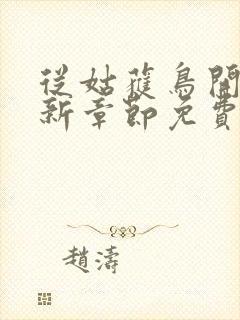 從姑蒦鳥開
新章節免費
趙濤